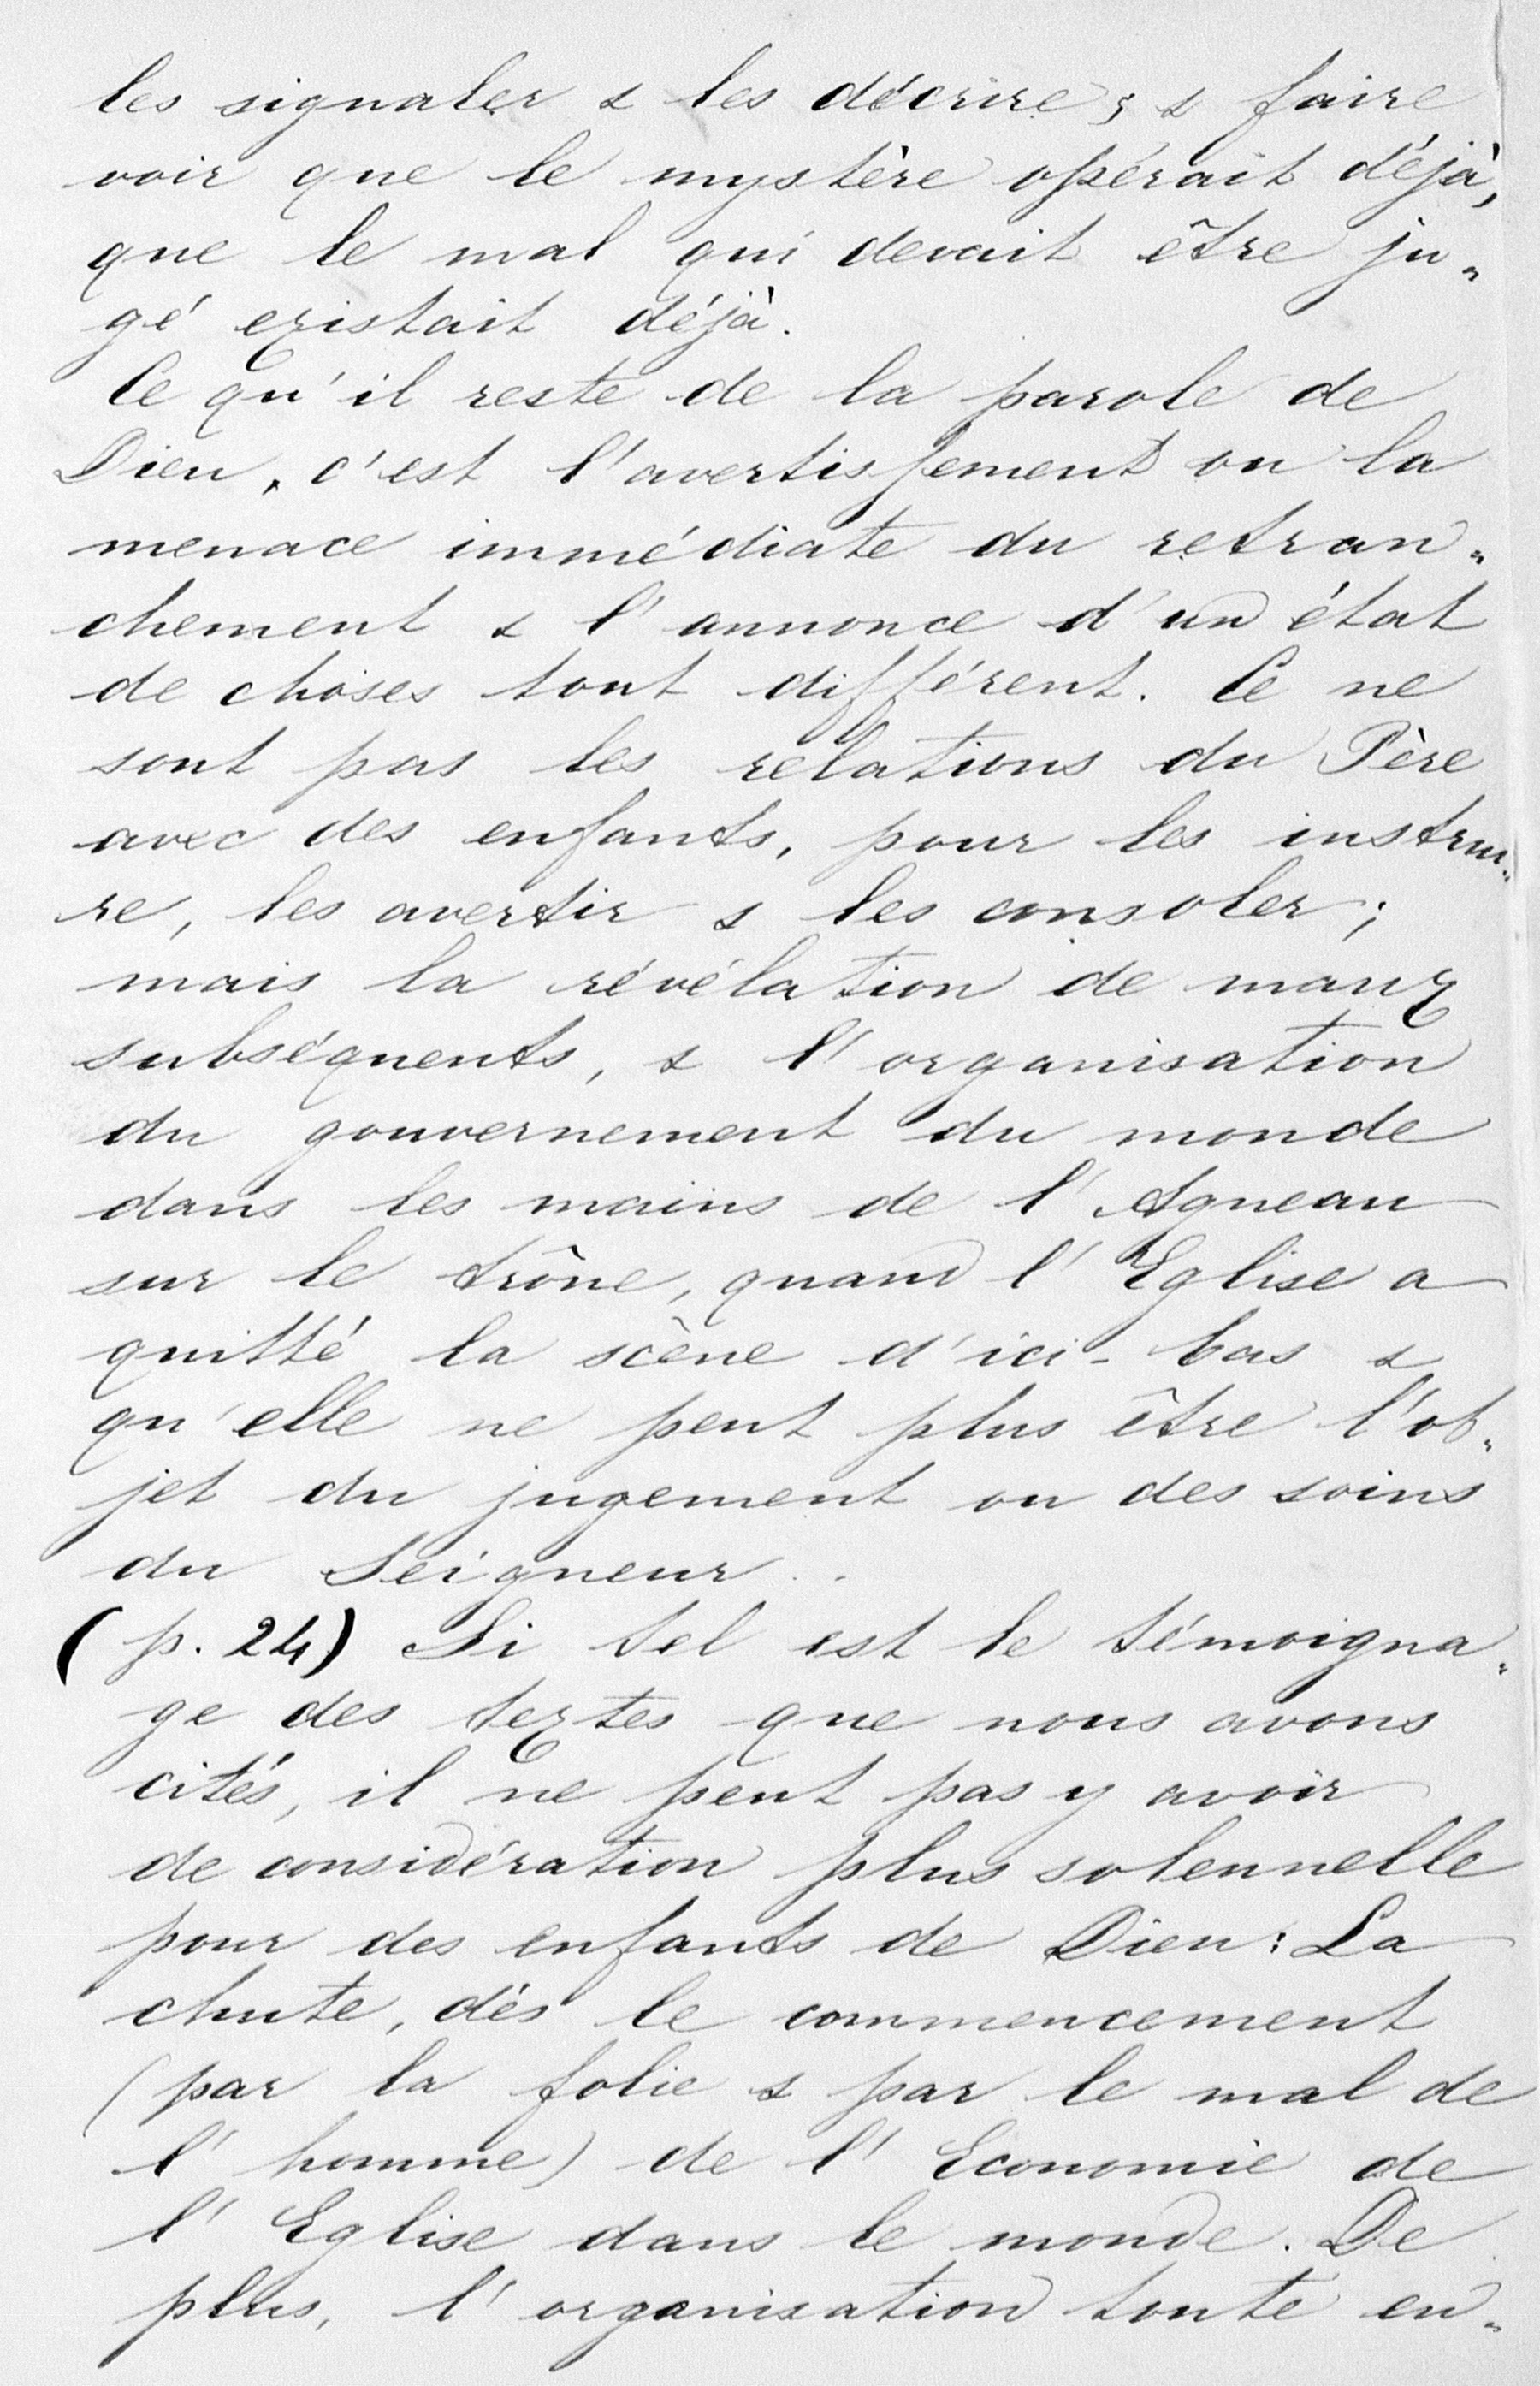 les signaler & les décrire; & faire
voir que le mystère opérait déjà,
que le mal qui devait être ju„
gé existait déjà.
Ce qu'il reste de la parole de
Dieu, c'est l'avertissement ou la
menace immédiate du retran„
chement & l'annonce d'un état
de choses tout différent. Ce ne
sont pas les relations du Père
avec des enfants, pour les instrui„
re, les avertir & les consoler;
mais la révélation de maux
subséquents, & l'organisation
du gouvernement du monde
dans les mains de l'Agneau
sur le trône, quand l'Eglise a
quitté la scène d'ici-bas &
qu'elle ne peut plus être l'ob„
jet du jugement ou des soins
du Seigneur..
(p. 24) Si tel est le témoigna„
ge des textes que nous avons
cités, il ne peut pas y avoir
de considération plus solennelle
pour des enfants de Dieu: La
chute, dès le commencement
(par la folie & par le mal de
l'homme) de l'Economie de
l'Eglise dans le monde. De
plus, l'organisation toute en„